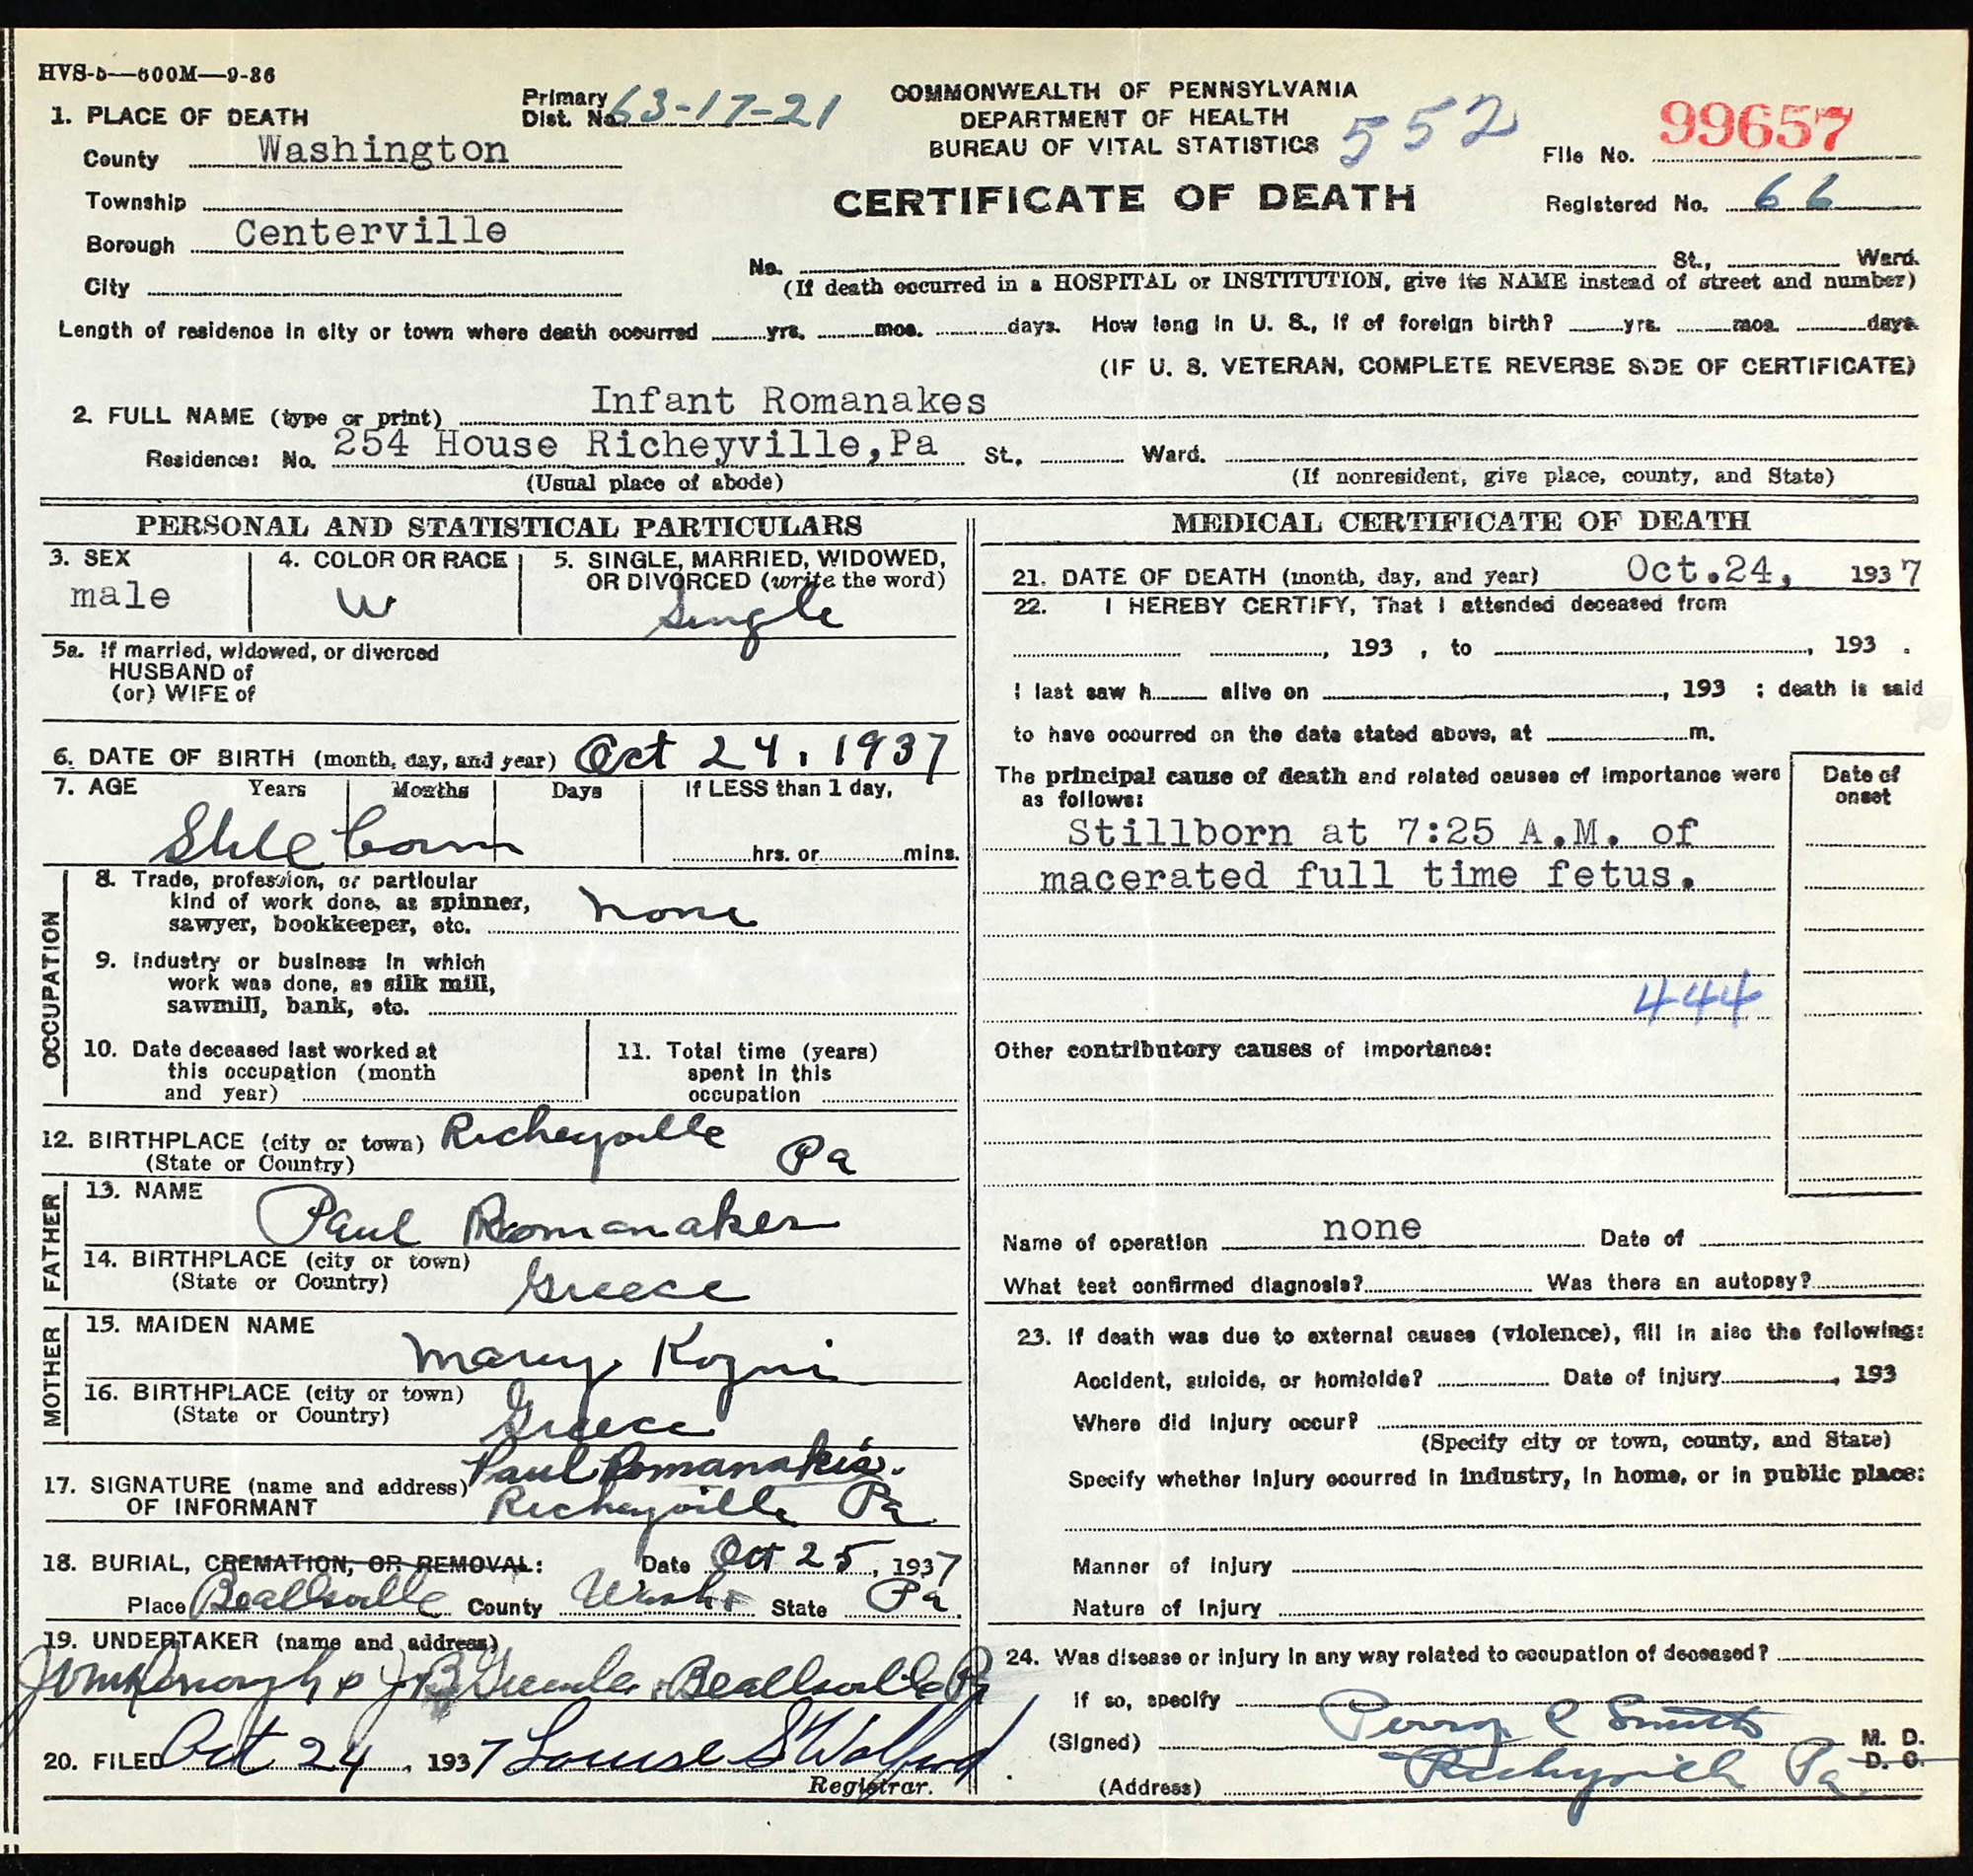 HVS-5—600M—9-36
1. PLACE OF DEATH
Primary Dist. No. 63-17-21
COMMONWEALTH OF PENNSYLVANIA
DEPARTMENT OF HEALTH
BUREAU OF VITAL STATISTICS
552
File No. 99657
County Washington
CERTIFICATE OF DEATH
Registered No. 66
Township
Borough Centerville
City
No. St., Ward.
(If death occurred in a HOSPITAL or INSTITUTION, give its NAME instead of street and number)
Length of residence in city or town where death occurred yrs. mos. days. How long in U. S., if of foreign birth? yrs. mos. days.
(IF U. S. VETERAN, COMPLETE REVERSE SIDE OF CERTIFICATE)
2. FULL NAME (type or print) Infant Romanakes
Residence: No. 254 House Richeyville,Pa St., Ward.
(Usual place of abode)
(If nonresident, give place, county, and State)
PERSONAL AND STATISTICAL PARTICULARS
3. SEX male
4. COLOR OR RACE W
5. SINGLE, MARRIED, WIDOWED, OR DIVORCED (write the word) Single
5a. If married, widowed, or divorced
HUSBAND of
(or) WIFE of
6. DATE OF BIRTH (month, day, and year) Oct 24, 1937
7. AGE Years Months Days If LESS than 1 day,
hrs. or mins.
OCCUPATION
8. Trade, profession, or particular
kind of work done, as spinner,
sawyer, bookkeeper, etc. none
9. Industry or business in which
work was done, as silk mill,
sawmill, bank, etc.
10. Date deceased last worked at
this occupation (month
and year)
11. Total time (years)
spent in this
occupation
12. BIRTHPLACE (city or town) Richeyville Pa
(State or Country)
FATHER
13. NAME Paul Romanakes
14. BIRTHPLACE (city or town)
(State or Country) Greece
MOTHER
15. MAIDEN NAME Mary
16. BIRTHPLACE (city or town)
(State or Country) Greece
17. SIGNATURE (name and address) Paul Romanakis.
OF INFORMANT Richeyville Pa
18. BURIAL, CREMATION, OR REMOVAL: Date Oct 25, 1937
Place Beallsville County Wash State Pa
19. UNDERTAKER (name and address)
Beallsville Pa
20. FILED Oct 24, 1937 Louise S
Registrar.
MEDICAL CERTIFICATE OF DEATH
21. DATE OF DEATH (month, day, and year) Oct.24, 1937
22. I HEREBY CERTIFY, That I attended deceased from
, 193 , to , 193 .
I last saw h alive on , 193 ; death is said
to have occurred on the date stated above, at m.
The principal cause of death and related causes of importance were
as follows:
Date of
onset
Stillborn at 7:25 A.M. of
macerated full time fetus.
444
Other contributory causes of importance:
Name of operation none Date of
What test confirmed diagnosis? Was there an autopsy?
23. If death was due to external causes (violence), fill in also the following:
Accident, suicide, or homicide? Date of injury , 193
Where did injury occur?
(Specify city or town, county, and State)
Specify whether injury occurred in industry, in home, or in public place:
Manner of injury
Nature of injury
24. Was disease or injury in any way related to occupation of deceased?
If so, specify
(Signed) Perry C Smith M. D.
D. O.
(Address) Pa